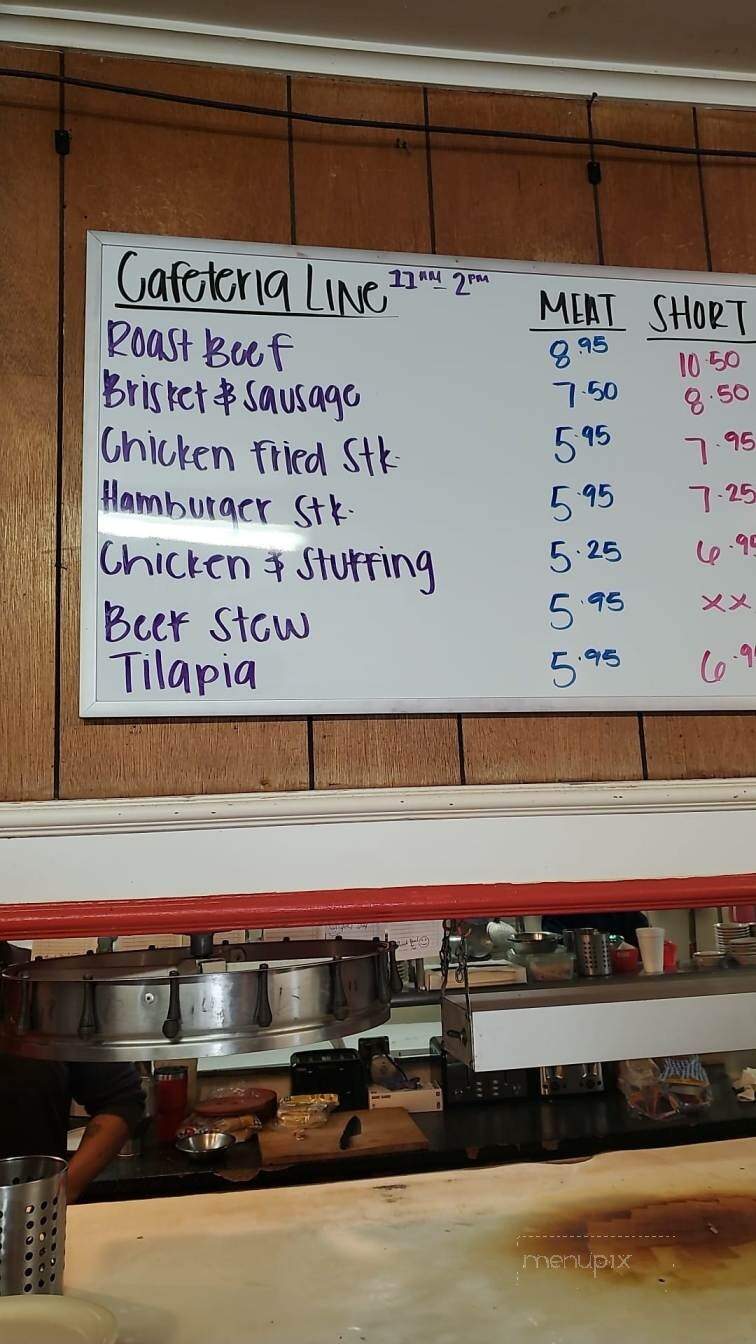 Cafeteria Line 11AM - 2PM MEAT SHORT
Roast Beef 8.95 10.50
Brisket & Sausage 7.50 8.50
Chicken Fried Stk. 5.95 7.95
Hamburger Stk. 5.95 7.25
Chicken & Stuffing 5.25 6.95
Beef Stew 5.95 xx
Tilapia 5.95
menupix